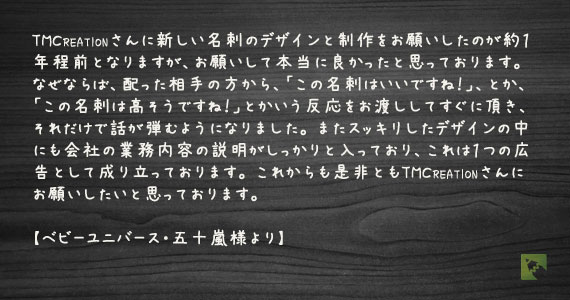 TMCREATIONさんに新しい名刺のデザインと制作をお願いしたのが約1
年程前となりますが、お願いして本当に良かったと思っております。
なぜならば、配った相手の方から、「この名刺はいいですね!」、とか、
「この名刺は高そうですね!」とかいう反応をお渡ししてすぐに頂き、
それだけで話が弾むようになりました。またスッキリしたデザインの中
にも会社の業務内容の説明がしっかりと入っており、これは1つの広
告として成り立っております。これからも是非ともTMCREATIONさんに
お願いしたいと思っております。
【ベビーユニバース・五十嵐様より】